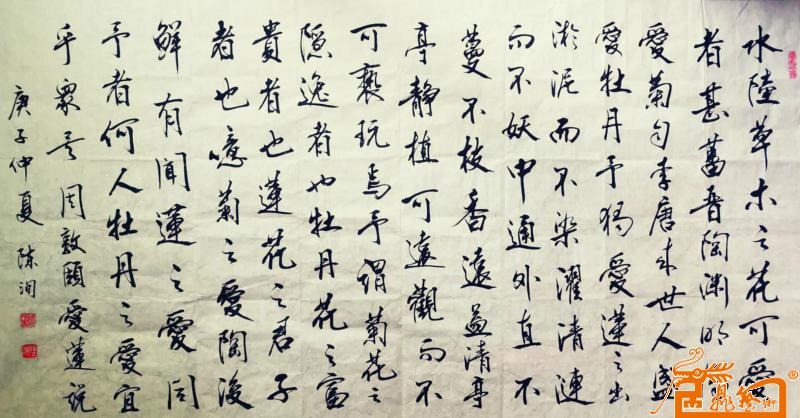 水陸草木之花可愛
者甚蕃晉陶淵明獨
愛菊自李唐来世人盛
愛牡丹予獨愛蓮之出
淤泥而不染濯清漣
而不妖中通外直不
蔓不枝香遠益清亭
亭静植可遠觀而不
可褻玩焉予謂菊花之
隱逸者也牡丹花之富
貴者也蓮花之君子
者也噫菊之愛陶後
鮮有聞蓮之愛同
予者何人牡丹之愛宜
乎眾矣周敦頤愛蓮說
庚子仲夏 陈洵